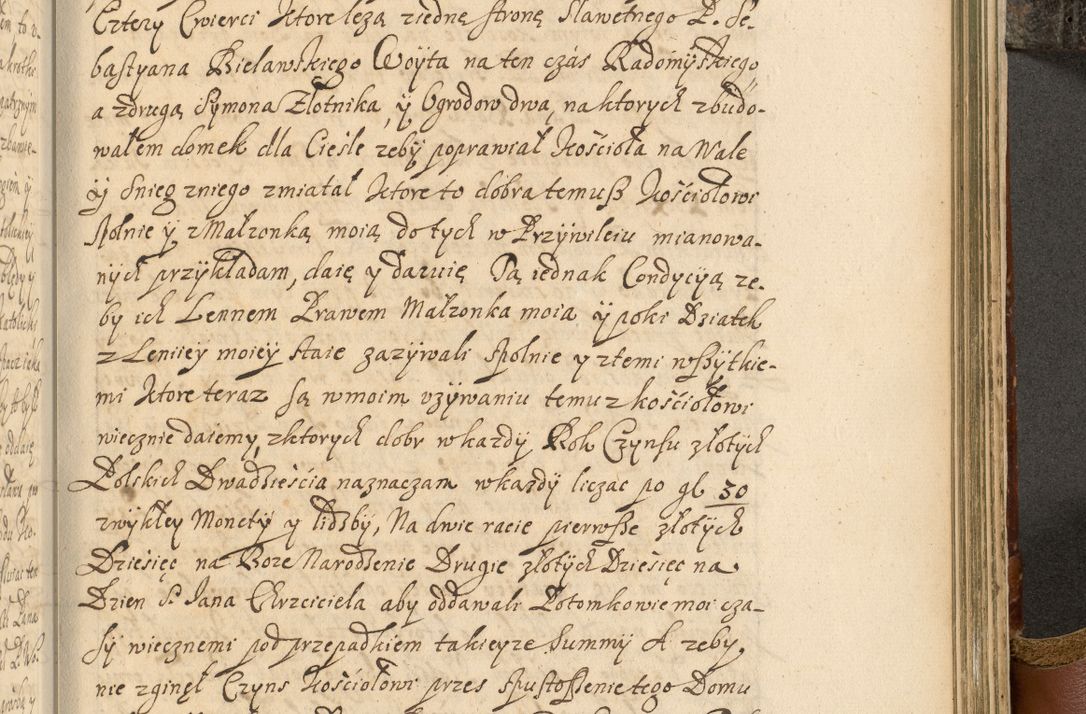 Cztery Cwierci ktore lezą ziednę stronę Sławetnego P. Se-
bastyana Bielawskiego Woyta na ten czás Radomyskiego,
a zdrugą Symona Złotnika, ÿ Ogrodow dwa, na ktorych zbudo-
wałem domek dla Cieśle zeby poprawiał kościoła na Wale
ÿ śnieg zniego zmiatał ktore to dobra temuß kościołowi
spolnie ÿ z Małzonką moią do tych w Przÿwileiu mianowa-
nÿch przykładam, daię y daruię Tą iednak Condycÿą ze-
by ich Lennem Prawem Małzonka moia ÿ poki Dziatek
z Leniiey moiey staie zazÿwali spolnie y ztemi wßÿtkie-
mi ktore teraz są wmoim vzÿwaniu temuz kościołowi
wiecznie daiemy, zktorych dobr wkazdÿ Rok Czynsu złotÿch
Polskich Dwadzieścia naznaczam wkazdÿ licząc po gl 30
zwÿkłey Monetÿ y lidzby, Na dwie racie pierwße złotÿch
Dziesięc na Boze Narodzenie Drugie złotÿch Dziesięc na
Dzien S. Iana Chrzciciela aby oddawali Potomkowie moi cza-
sÿ wiecznemi pod przepadkiem takieyze Summÿ A zeby,
nie zginęł Czyns kościołowi przes spustoßenie tego Domu